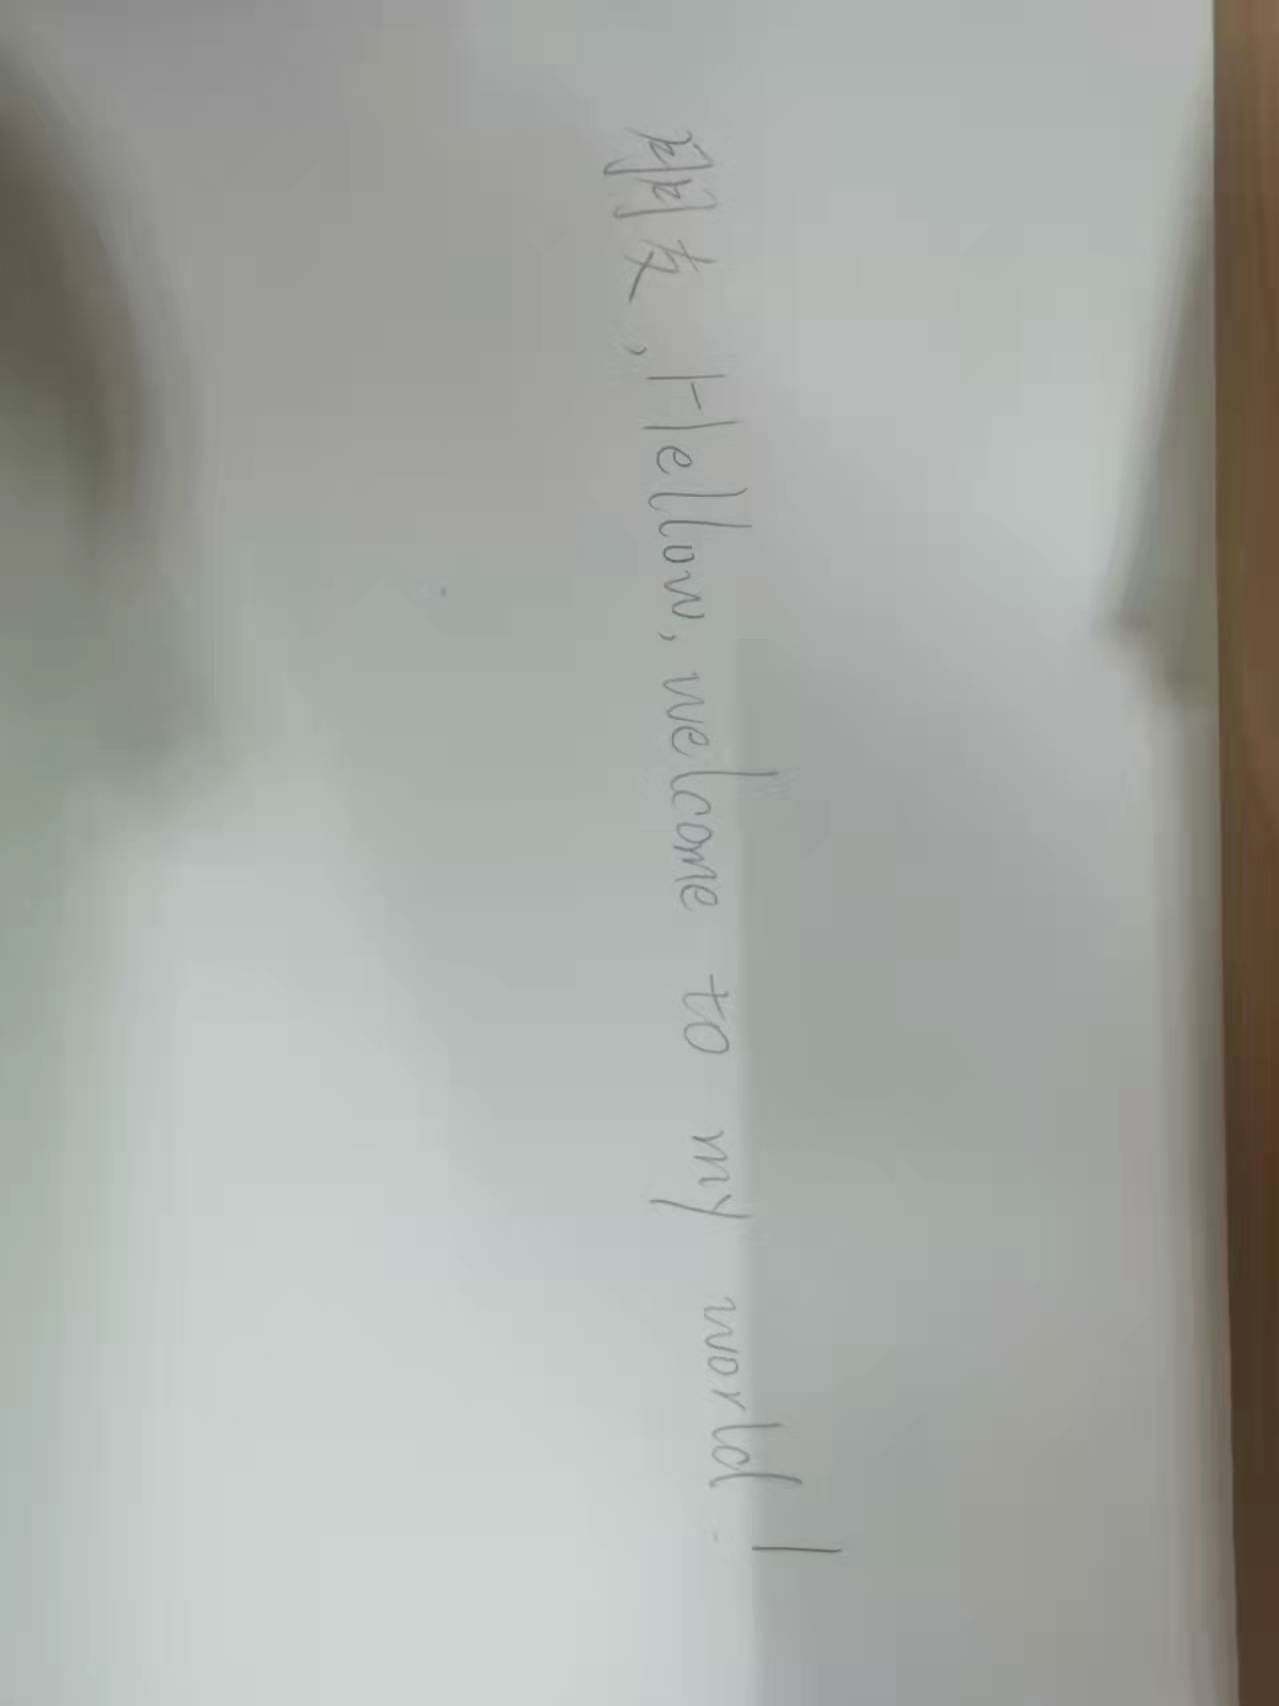 朋友,Hellow,welcome to my world!